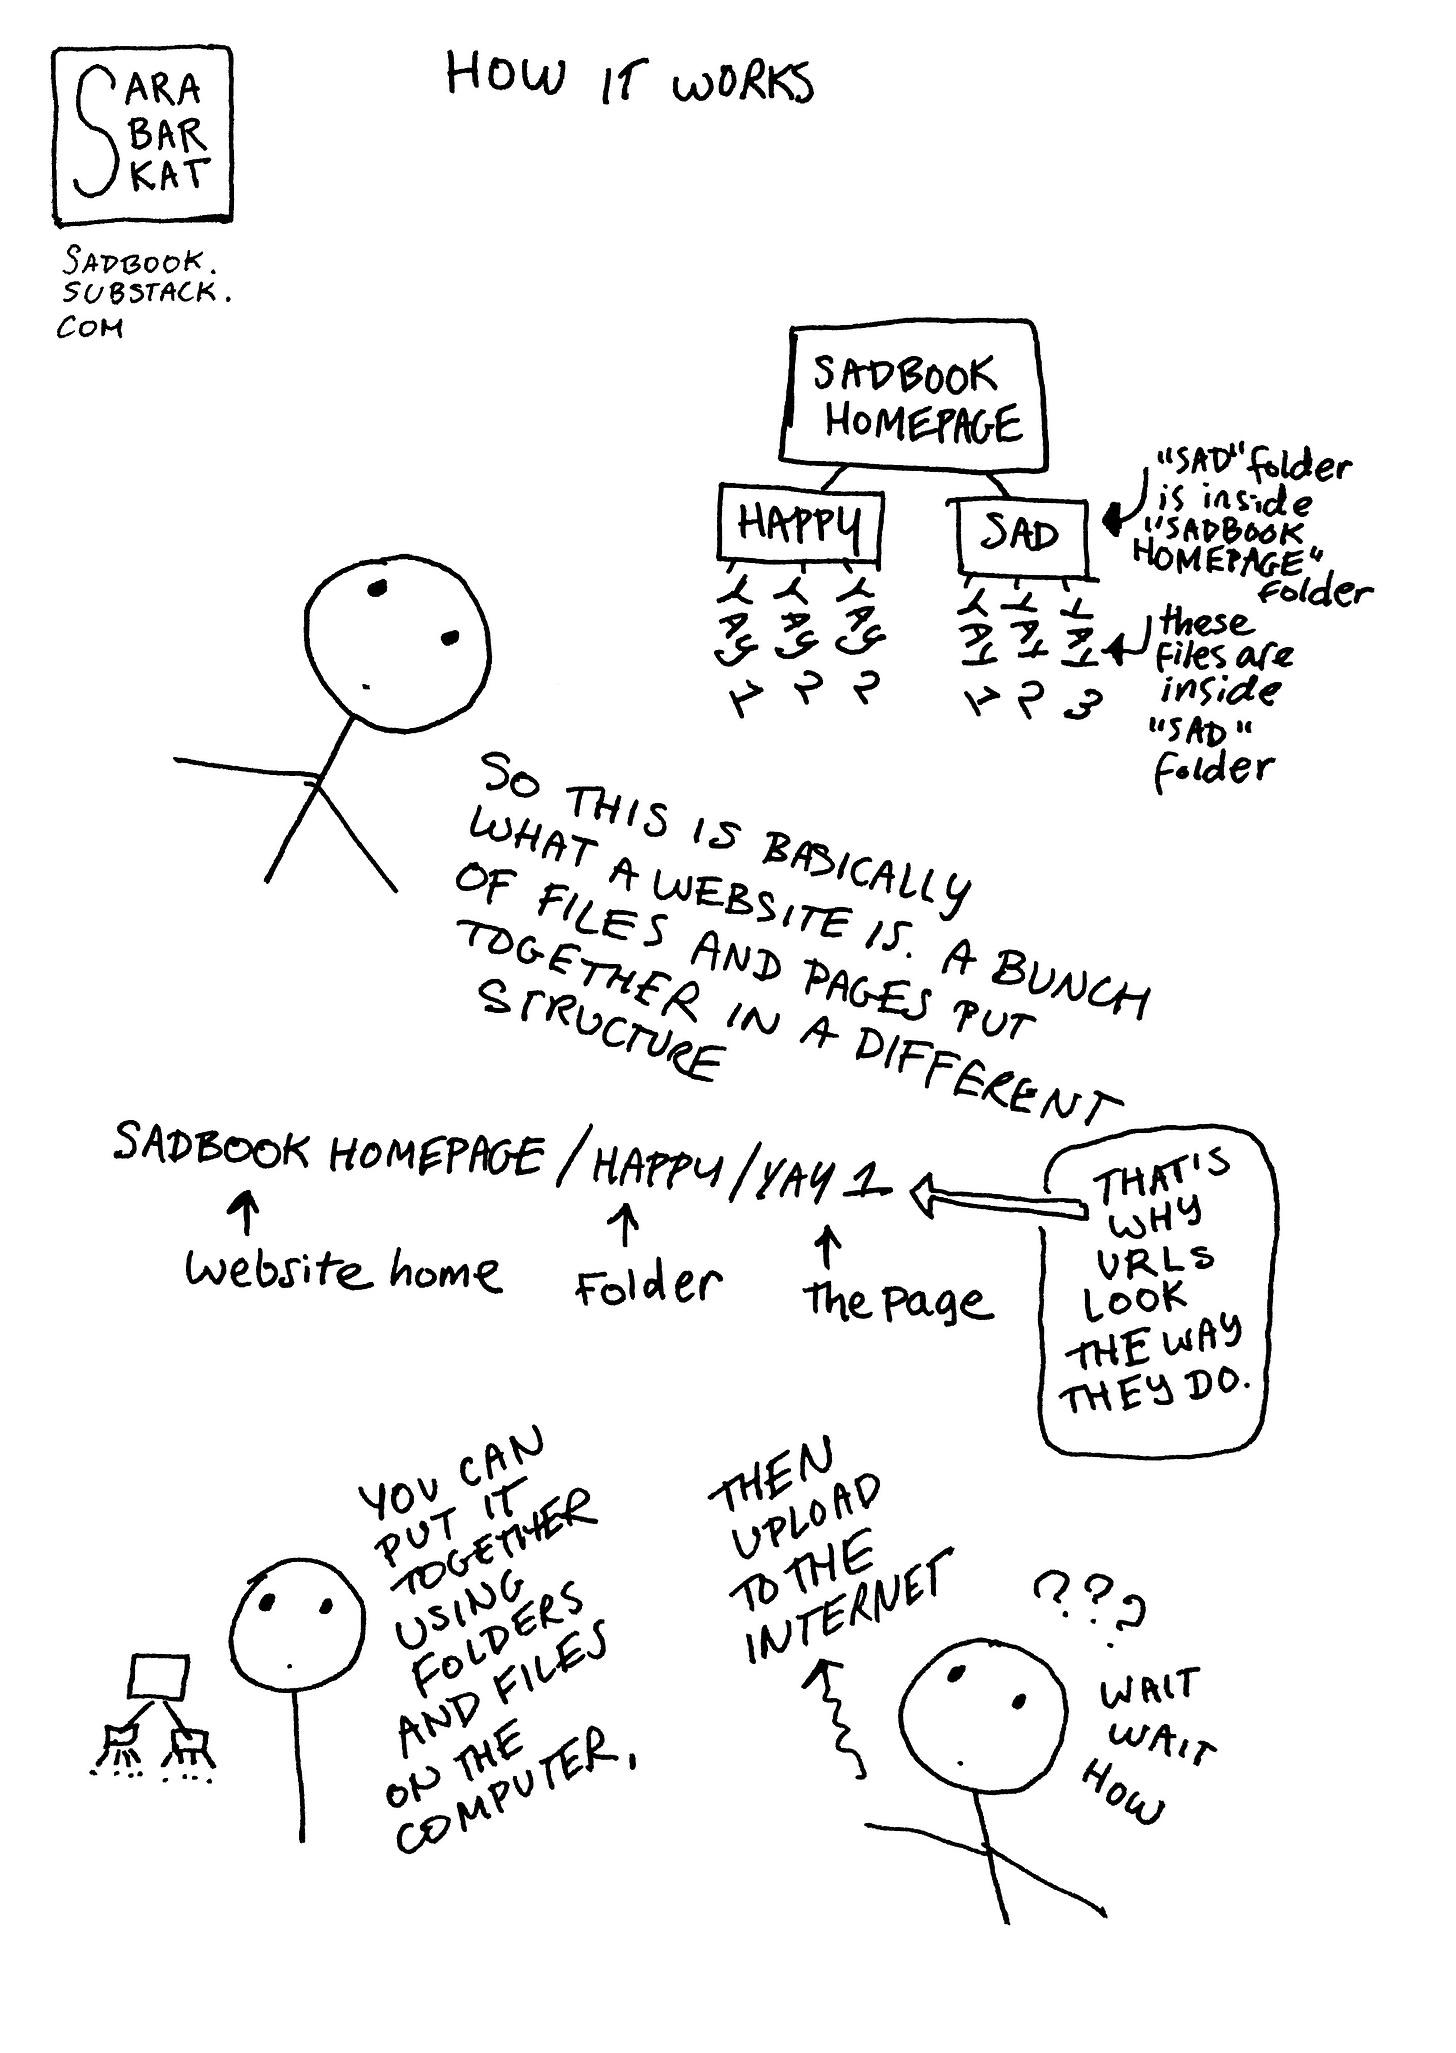 HOW IT WORKS
SARA
BAR
KAT
SADBOOK.
SUBSTACK.
COM
SADBOOK
HOMEPAGE
HAPPY
SAD
YAY 1
YAY 2
YAY 2
"SAD" folder
is inside
"SADBOOK
HOMEPAGE"
folder
these
files are
inside
"SAD"
folder
SO THIS IS BASICALLY
WHAT A WEBSITE IS. A BUNCH
OF FILES AND PAGES PUT
TOGETHER IN A DIFFERENT
STRUCTURE
SADBOOK HOMEPAGE / HAPPY / YAY 1
Website home
Folder
the page
THAT'S
WHY
URLS
LOOK
THE WAY
THEY DO.
YOU CAN
PUT IT
TOGETHER
USING
FOLDERS
AND FILES
ON THE
COMPUTER.
THEN
UPLOAD
TO THE
INTERNET
???
WAIT
WAIT
HOW